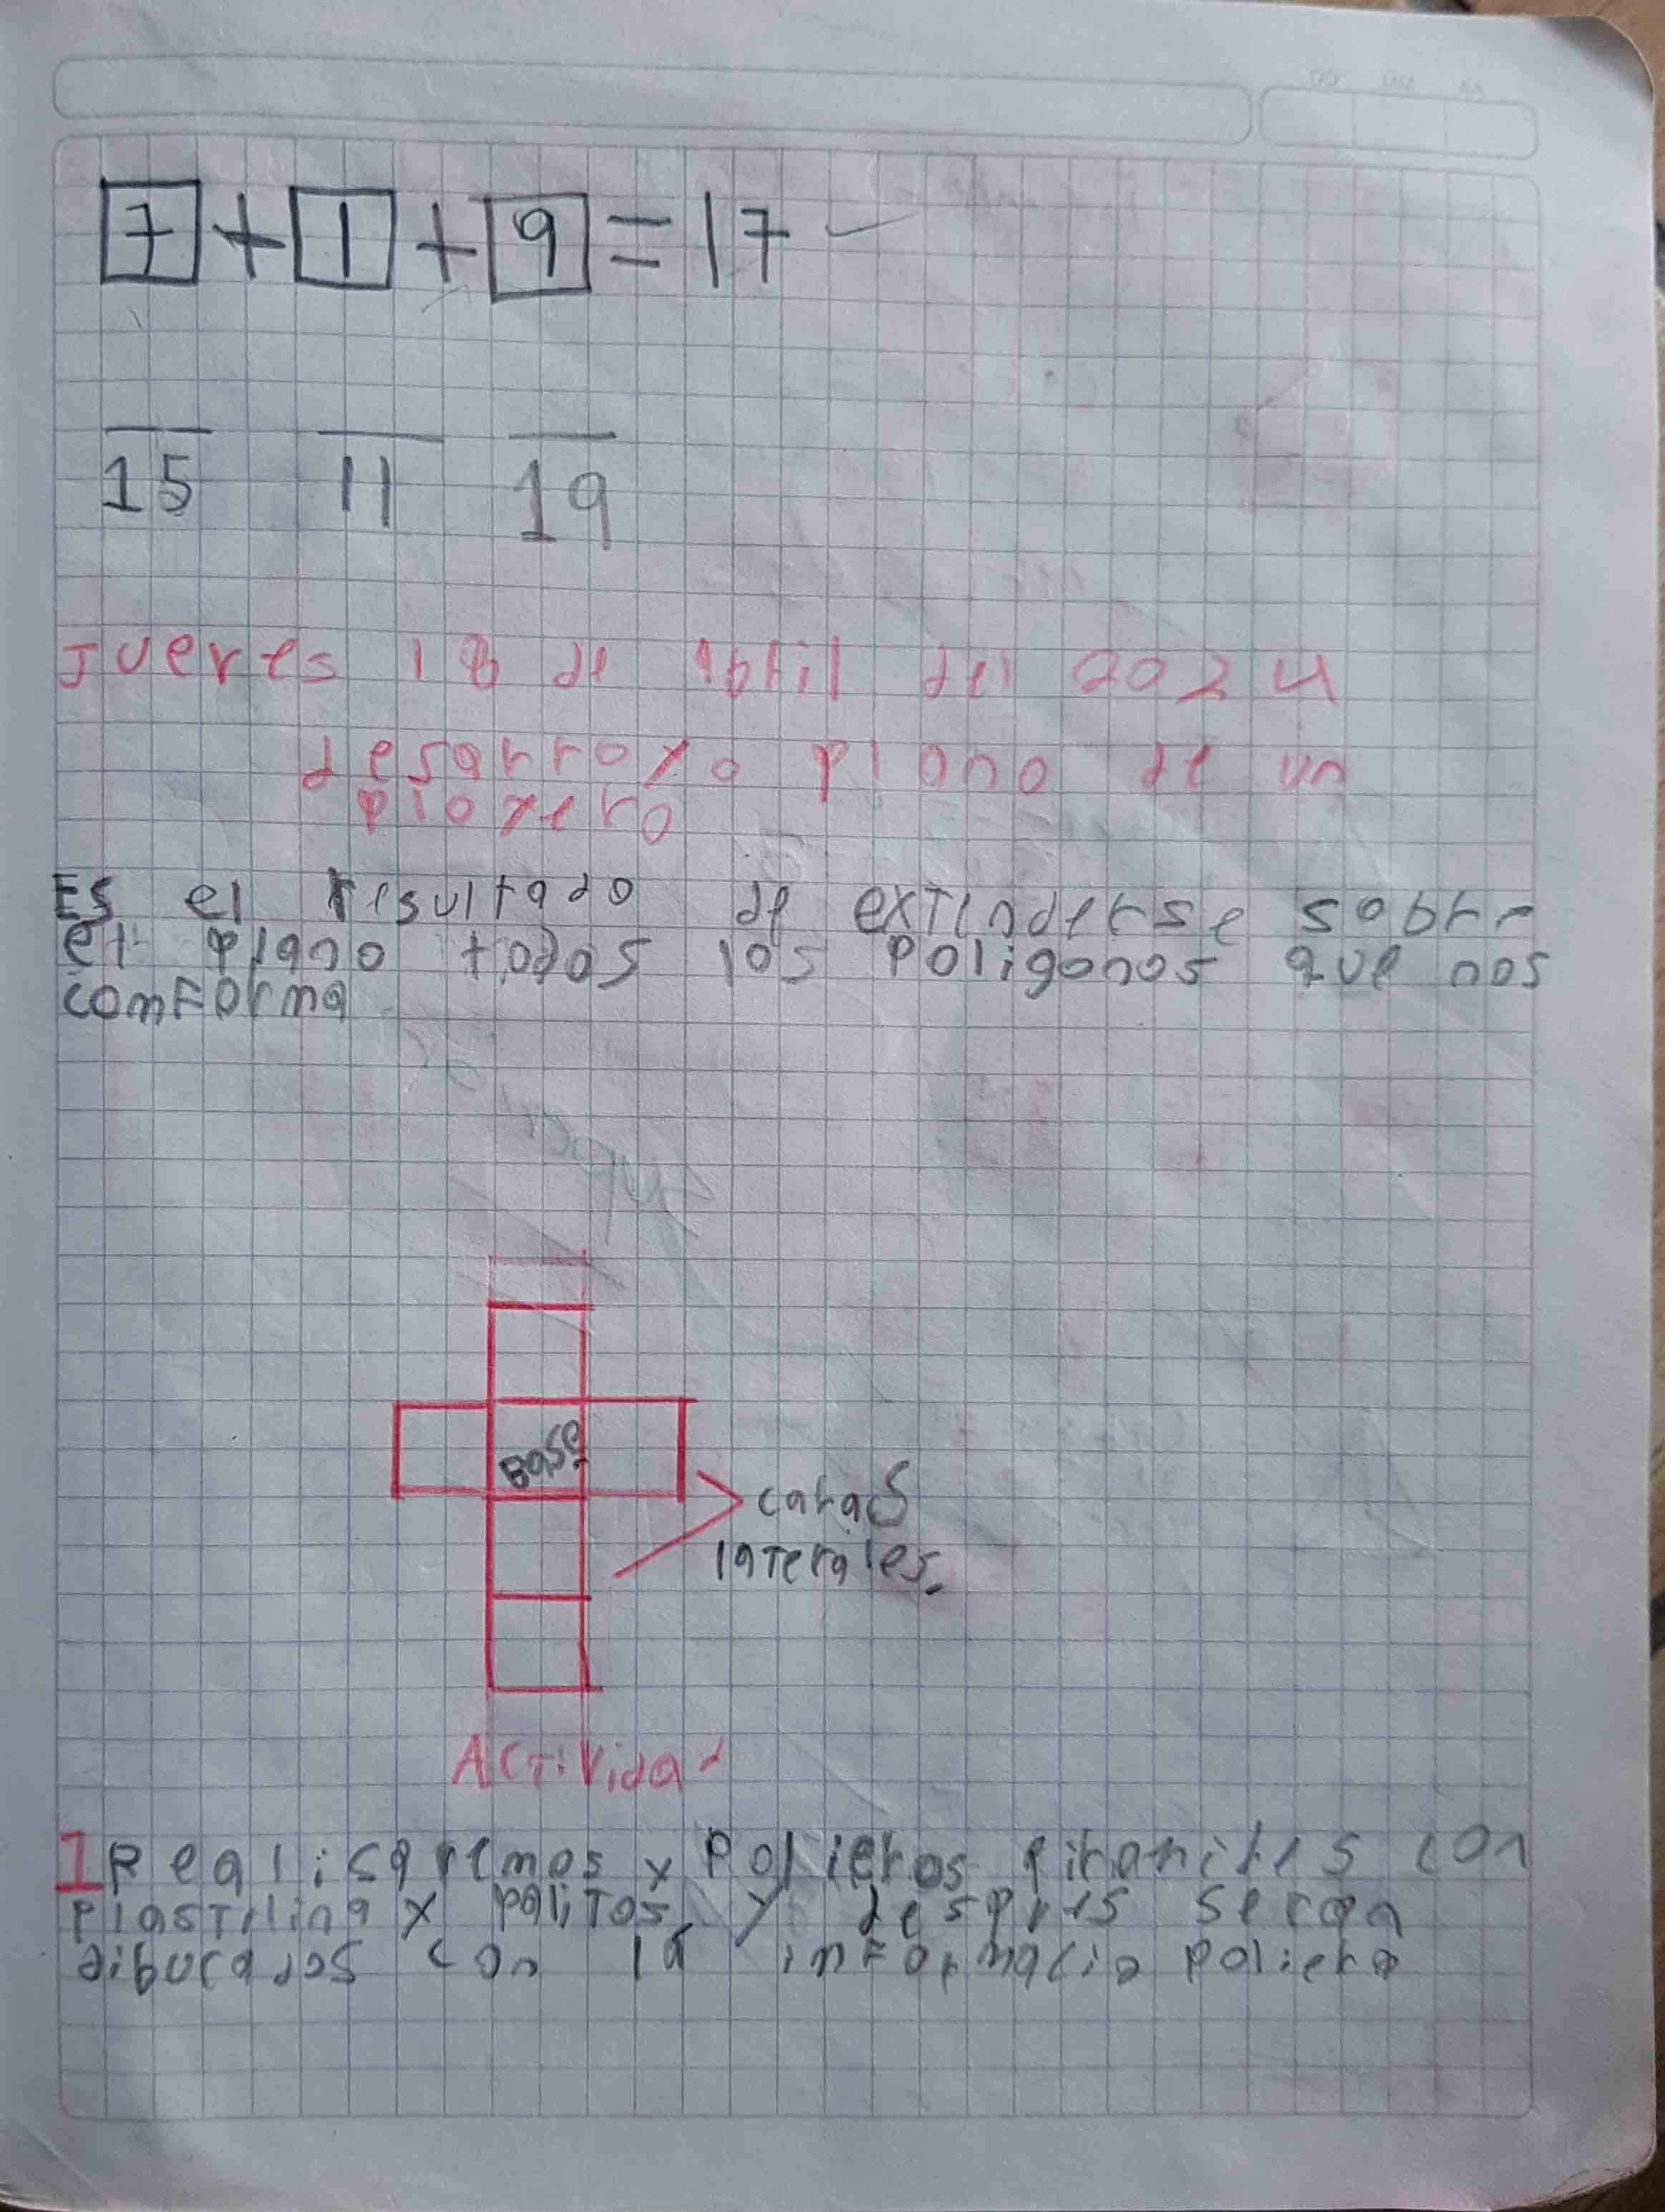 7 + 1 + 9 = 17
15 11 19
Jueves 18 de abril del 2024
desarroyo plano de un
ployero
Es el resultado de extenderse sobre
el plano todos los poligonos que nos
comForma
Base
caras
laterales.
Actividad
1 Realisaremos y Polieros
plastilina y palitos y despues seran
dibucados con la informacio poliero